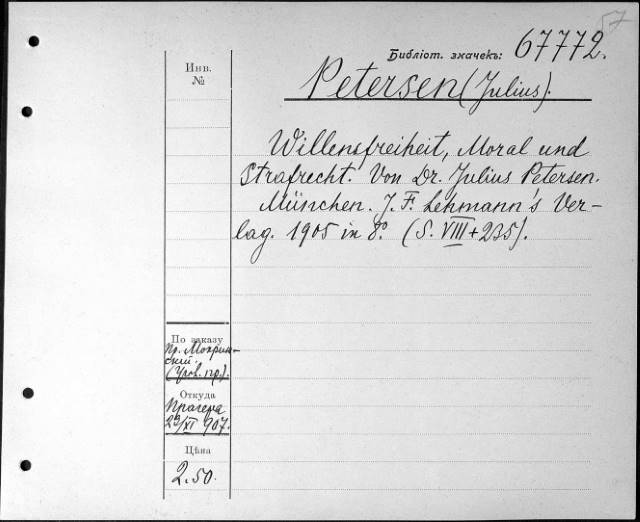 57
Библіот. значекъ: 67772.
Инв.
№
Petersen (Julius).
Willensfreiheit, Moral und
Strafrecht. Von Dr. Julius Petersen.
München. J. F. Lehmann's Ver-
lag. 1905 in 8°. (S. VIII + 235).
По заказу
Пр. Мокрин-
скій.
(Угов. пр.).
Откуда
Прагера
23/XI 907.
Цѣна
2.50.